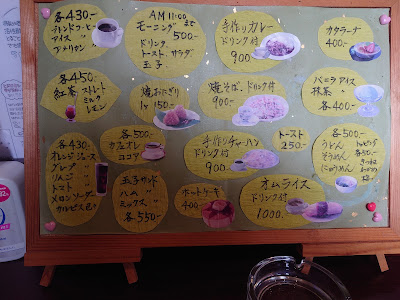 各430.-
ブレンドコーヒー
アイス 〃
アメリカン 〃
AM 11:00まで
モーニング
500.-
ドリンク
トースト、サラダ
玉子
手作りカレー
ドリンク付
900.-
カタラーナ
400.-
各450.-
紅茶 ストレート
ミルク
レモン
焼おにぎり
1ケ 150.-
焼そば、ドリンク付
900.-
バニラアイス
抹茶 〃
各400.-
各430.-
オレンジジュース
グレープ 〃
りんご 〃
トマト 〃
メロンソーダー
カルピス
各500.-
カフェオレ
ココア
手作りチャーハン
ドリンク付
900.-
トースト
250.-
各500.-
うどん
そうめん
にゅうめん
玉子サンド
ハム 〃
ミックス 〃
各550.-
ホットケーキ
400.-
オムライス
ドリンク付
1000.-